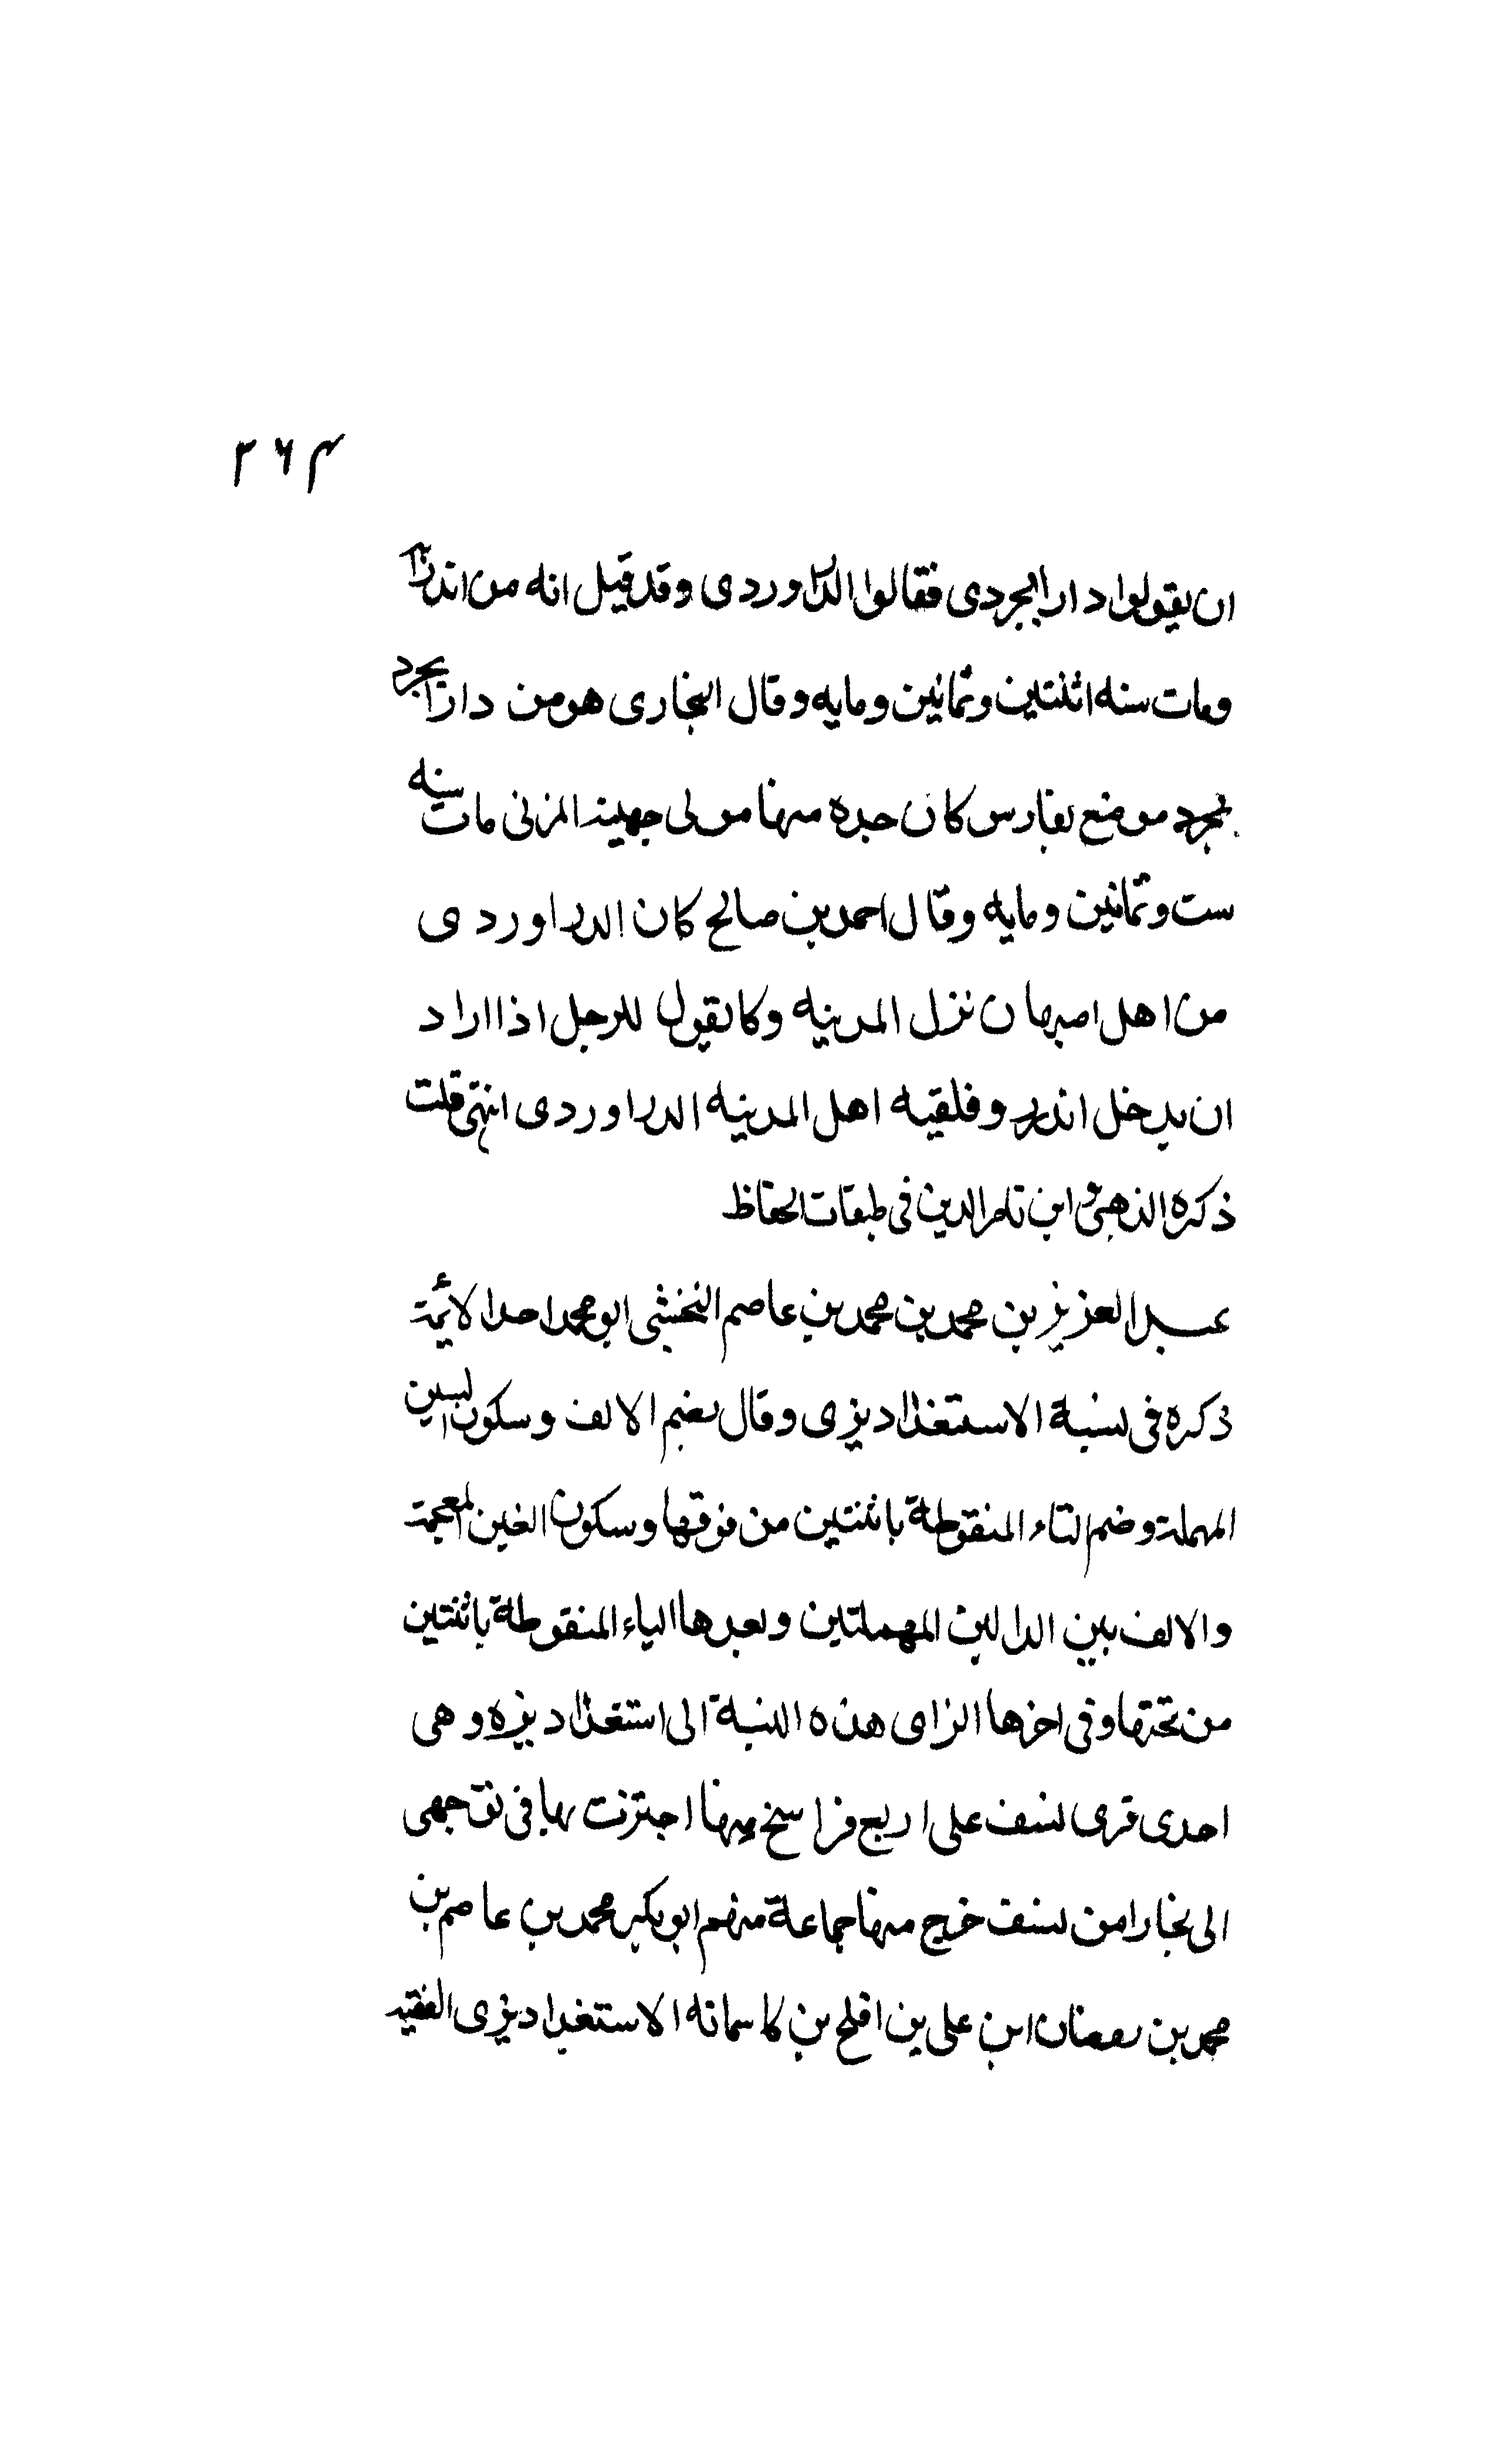 ٢٦٤
ان يقولوا دارابجردى فقالوا الدراوردى وقد قيل انه من اندرابه
ومات سنه اثنتين وثمانين ومايه وقال البخارى هو من دارابجرد
بجرد موضع بفارس كان جده منها مولى جهينة المزنى مات سنه
ست وثمانين ومايه وقال احمد بن صالح كان الدراوردى
من اهل اصبهان نزل المدينه وكا يقول للرجل اذا اراد
ان يدخل اندرو فلقيه اهل المدينه الدراوردى انتهى قلت
ذكره الذهبى وابن ناصر الدين فى طبقات الحفاظ
عبد العزيز بن محمد بن محمد بن عاصم النخشبى ابو محمد احد الائمة
ذكره فى نسبة الاستغدادیزى وقال بضم الالف وسكون السين
المهملة وضم التاء المنقوطة باثنتين من فوقها وسكون الغين المعجمة
والالف بين الدالين المهملتين وبعدها الياء المنقوطة باثنتين
من تحتها وفى اخرها الزاى هذه النسبة الى استغدادیزه وهى
احدى قرى نسف على اربع فراسخ منها اجتزت بها فى توجهى
الى بخارا من نسف خرج منها جماعة منهم ابو بكر محمد بن عاصم بن
محمد بن رمضان ابن على بن افلح بن كاسمانه الاستغدادیزى الفقيه